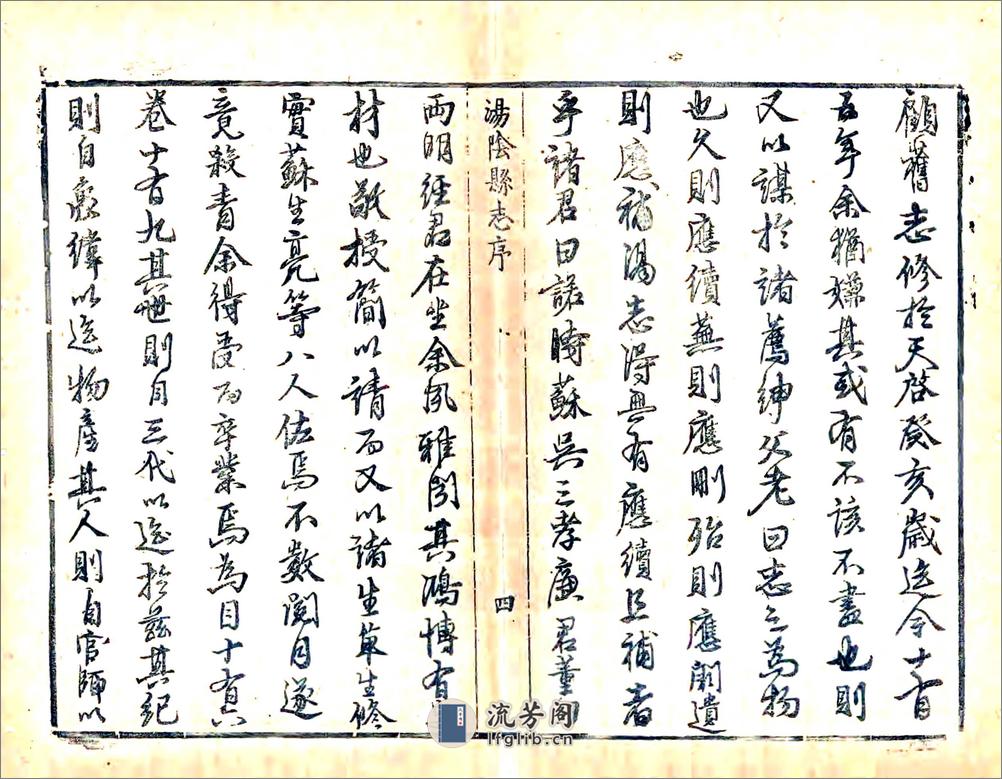 顧舊志修於天啓癸亥歲迄今十有
五年余猶嫌其或有不該不盡也則
又以謀於諸薦紳父老曰志之為物
也久則應續蕪則應刪殆則應闕遺
則應補湯志得毋有應續且補者
乎諸君曰諾時蘇吳三孝廉君董
湯陰縣志序
四
兩明經君在坐余夙雅聞其鴻博有
材也敬授簡以請而又以諸生單生修
實蘇生亮等八人佐焉不數閱月遂
竟殺青余得受而卒業焉為目十有六
卷十有九其世則自三代以迄於茲其紀
則自象緯以迄物產其人則自官師以
流芳閣
lfglib.cn